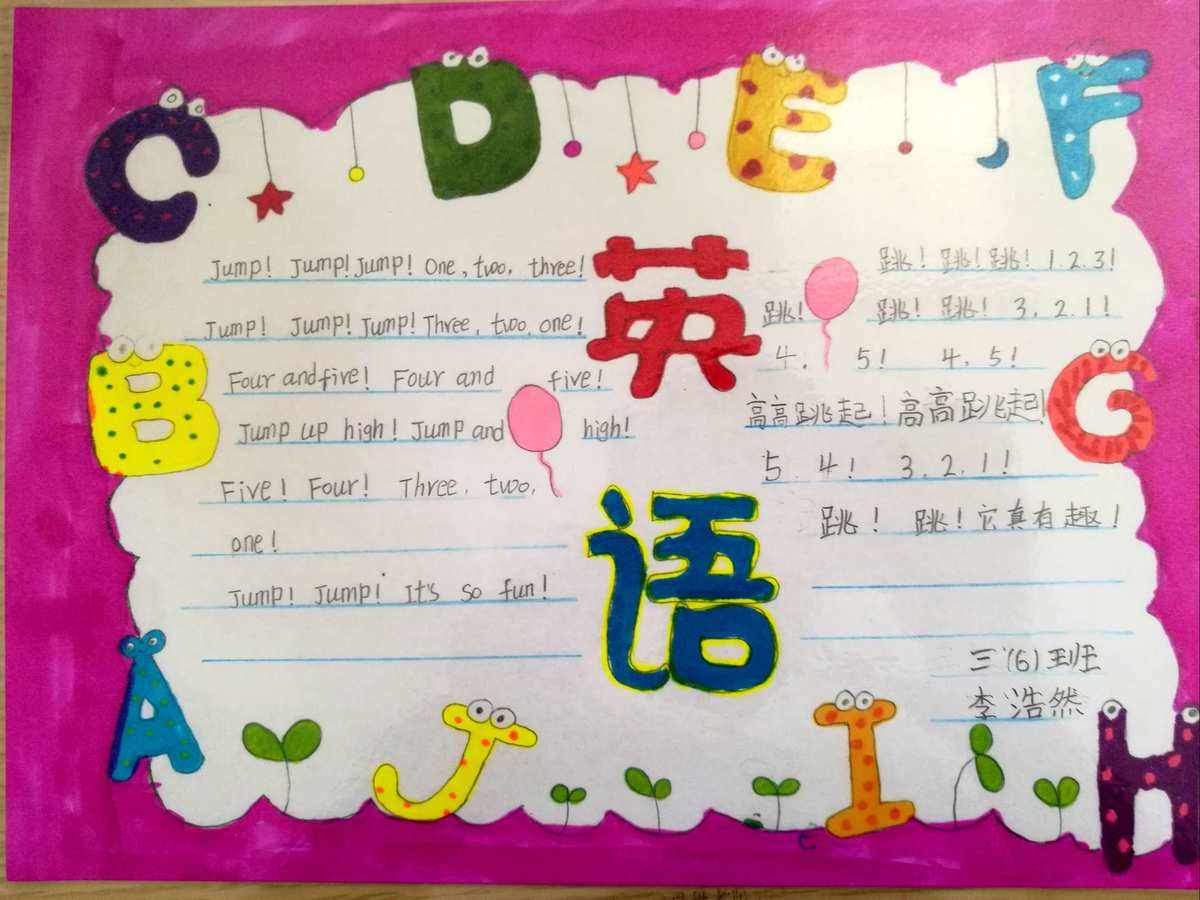 C D E F
B
A
J
I
H
G
英语
Jump! Jump! Jump! One, two, three!
Jump! Jump! Jump! Three, two, one!
Four and five! Four and five!
Jump up high! Jump and high!
Five! Four! Three, two,
one!
Jump! Jump! It's so fun!
跳! 跳! 跳! 1.2.3!
跳! 跳! 跳! 3.2.1!
4. 5! 4.5!
高高跳起! 高高跳起!
5.4! 3.2.1!
跳! 跳! 它真有趣!
三(6)班
李浩然